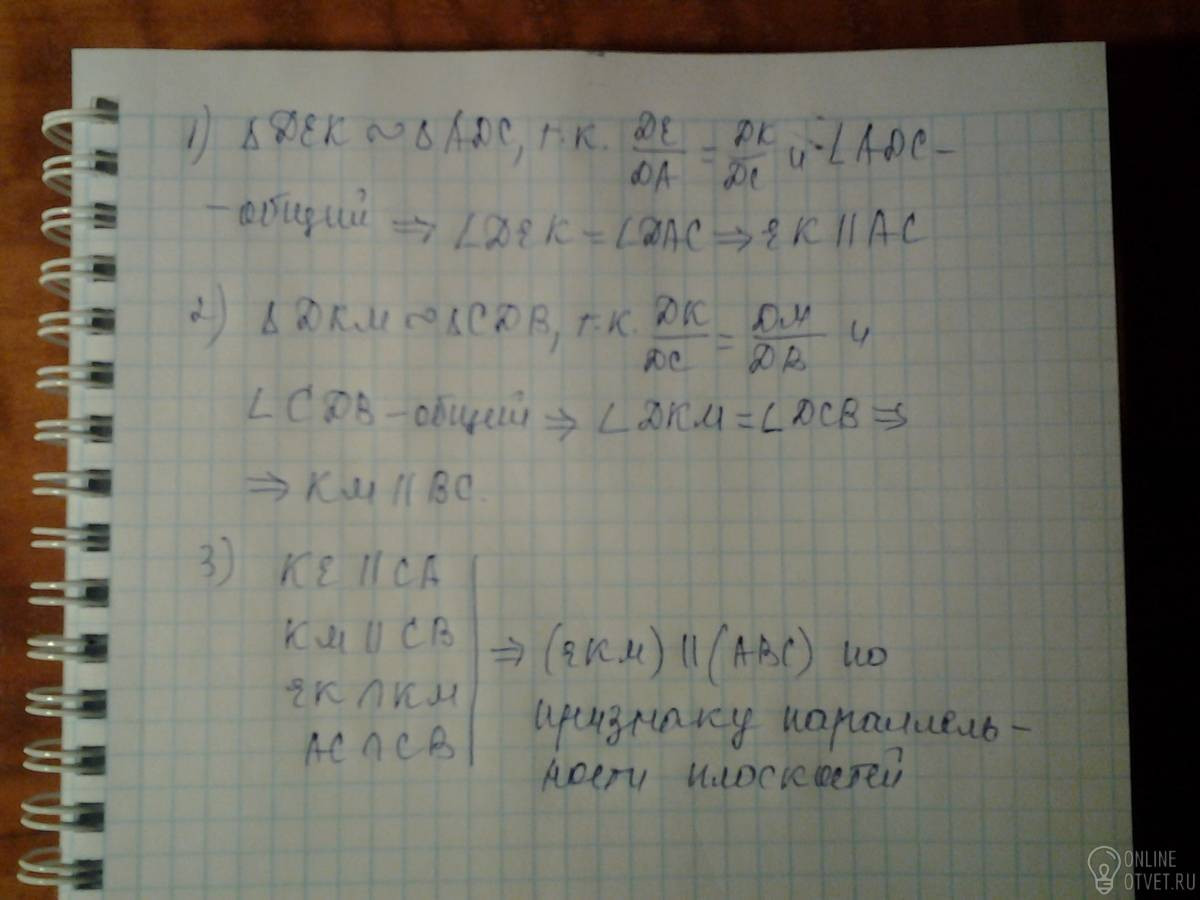 1) Δ DEK ~ Δ ADC, т.к. DE/DA = DK/DC и ∠ADC –
– общий ⇒ ∠DEK = ∠DAC ⇒ EK || AC
2) Δ DKM ~ Δ CDB, т.к. DK/DC = DM/DB и
∠CDB – общий ⇒ ∠DKM = ∠DCB ⇒
⇒ KM || BC.
3) KE || CA
KM || CB
EK ∩ KM
AC ∩ CB
⇒ (EKM) || (ABC) по
признаку параллель-
ности плоскостей
ONLINE
OTVET.RU